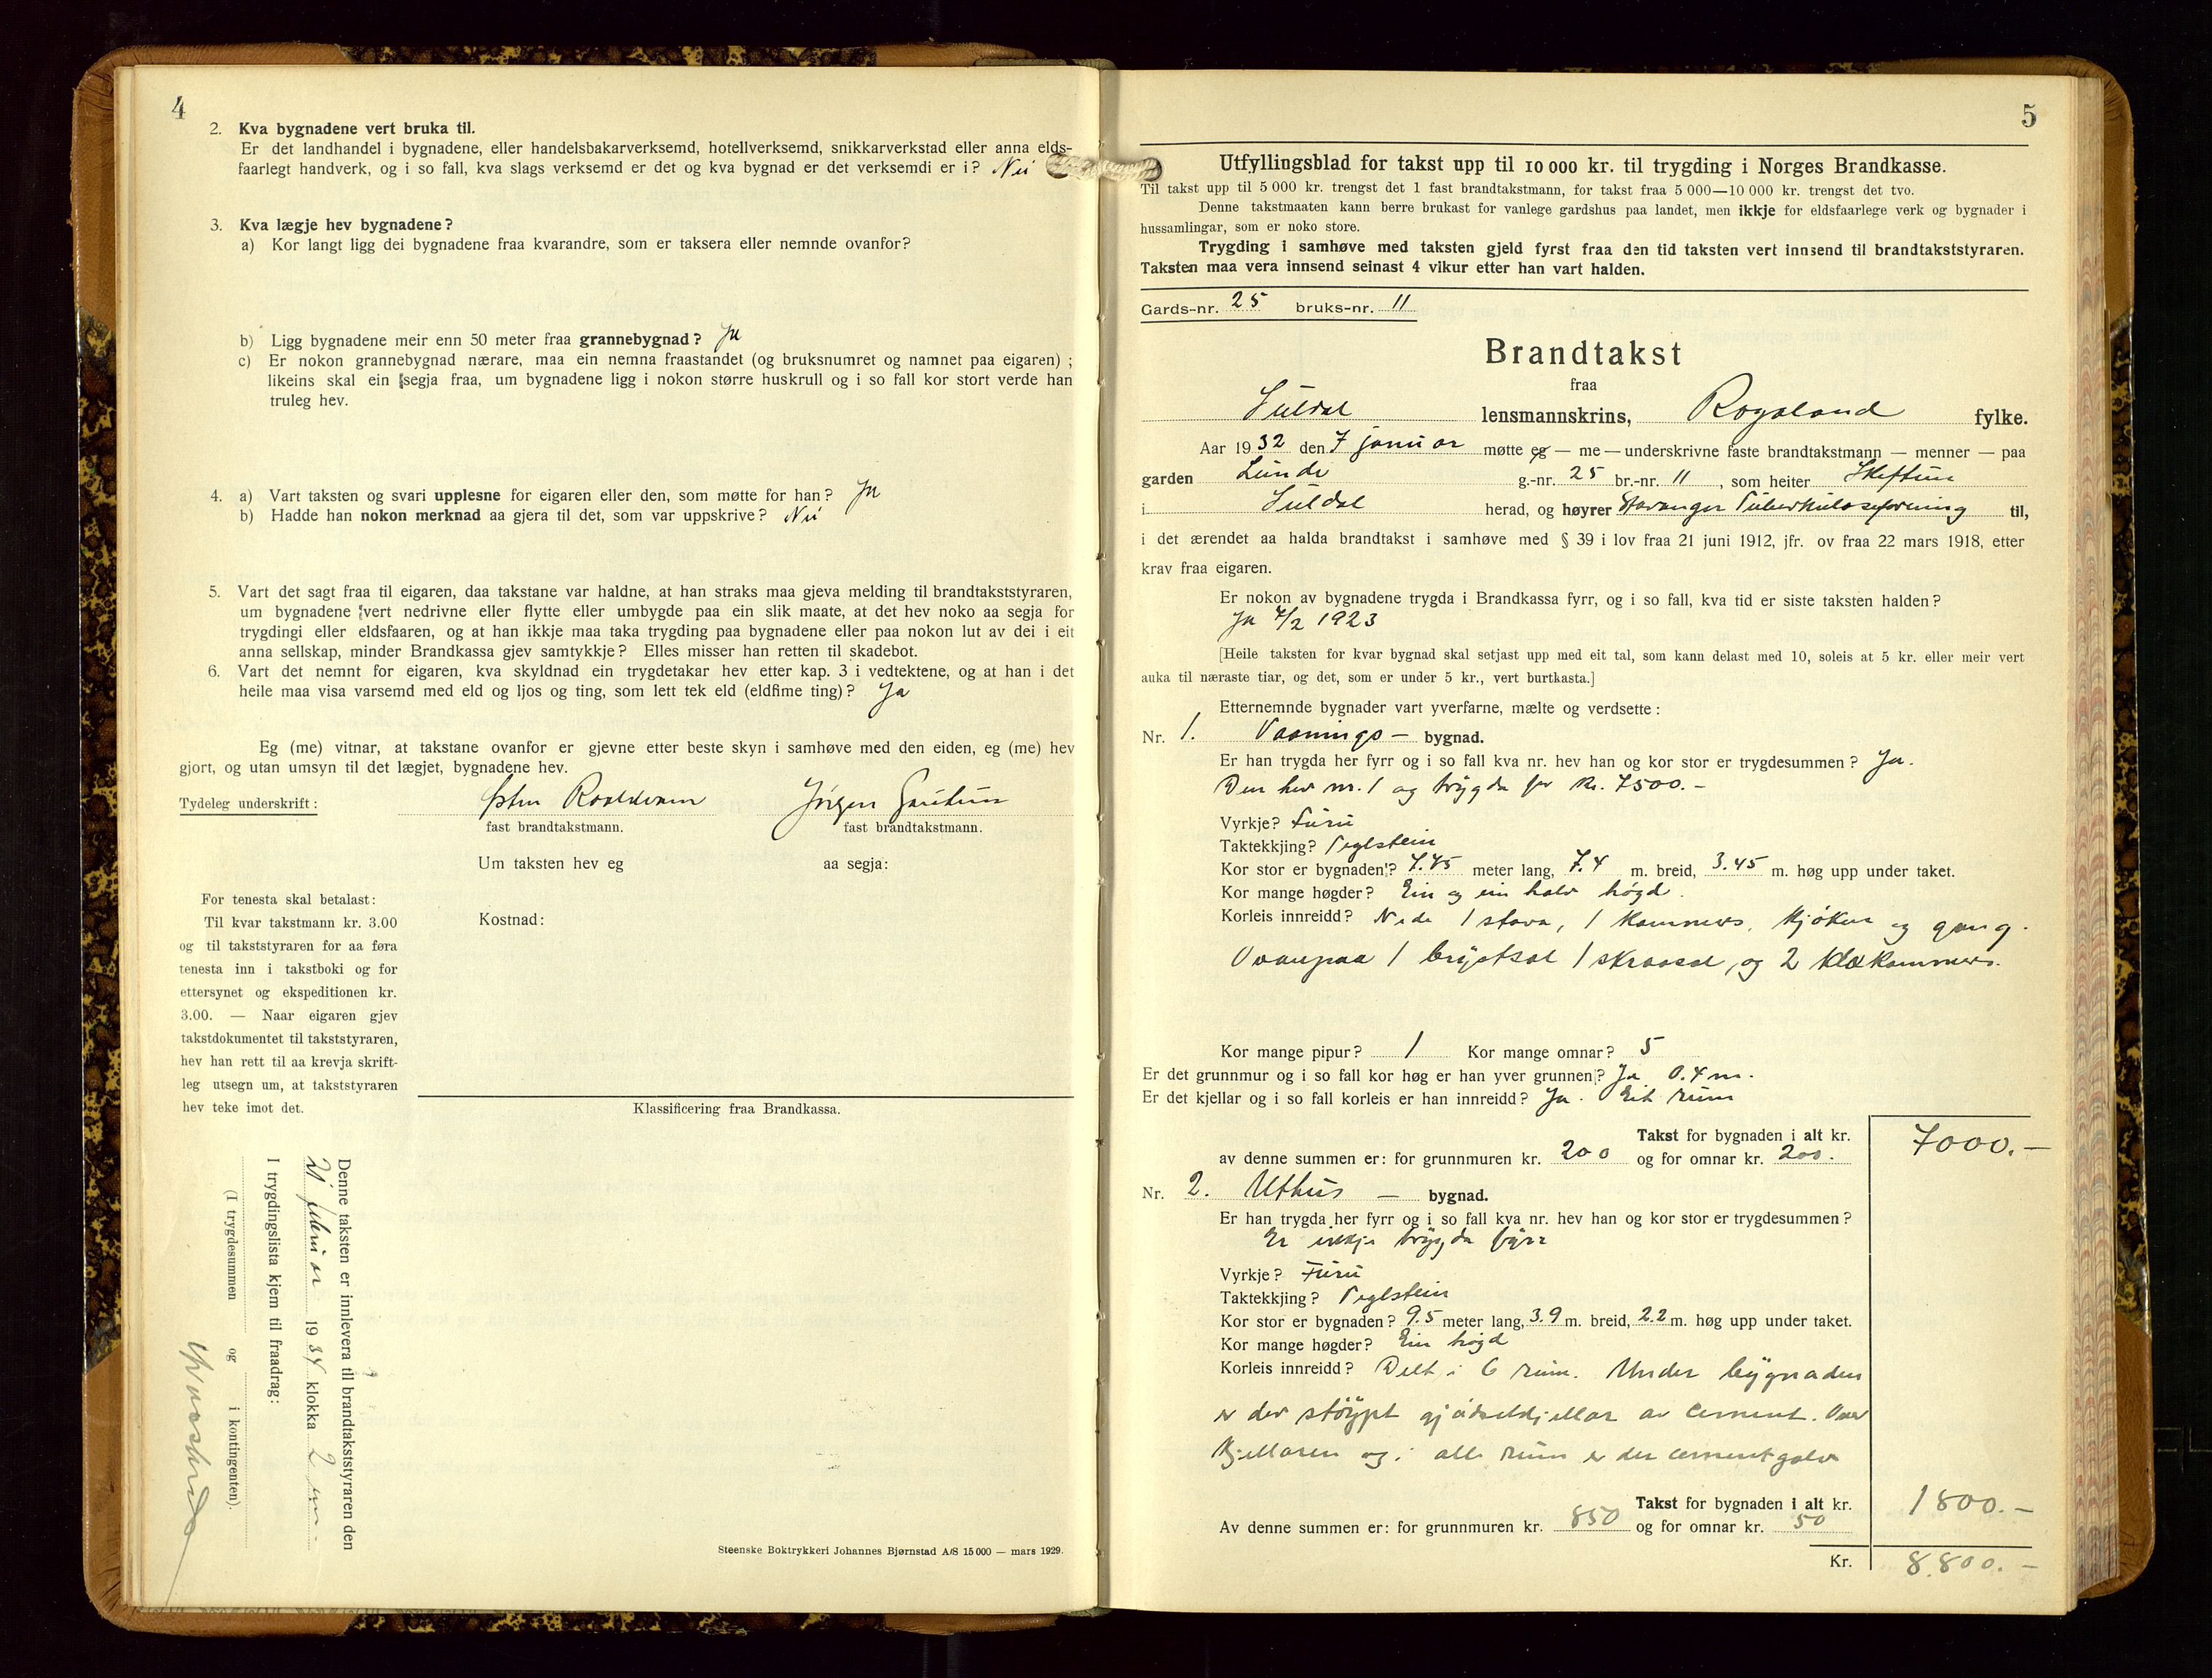 4
2. Kva bygnadene vert bruka til.
Er det landhandel i bygnadene, eller handelsbakarverksemd, hotellverksemd, snikkarverkstad eller anna elds-
faarlegt handverk, og i so fall, kva slags verksemd er det og kva bygnad er det verksemdi er i? Nei
3. Kva lægje hev bygnadene?
a) Kor langt ligg dei bygnadene fraa kvarandre, som er taksera eller nemnde ovanfor?
b) Ligg bygnadene meir enn 50 meter fraa grannebygnad? Ja
c) Er nokon grannebygnad nærare, maa ein nemna fraastandet (og bruksnumret og namnet paa eigaren);
likeins skal ein segja fraa, um bygnadene ligg i nokon større huskrull og i so fall kor stort verde han
truleg hev.
4. a) Vart taksten og svari upplesne for eigaren eller den, som møtte for han? Ja
b) Hadde han nokon merknad aa gjera til det, som var uppskrive? Nei
5. Vart det sagt fraa til eigaren, daa takstane var haldne, at han straks maa gjeva melding til brandtakststyraren,
um bygnadene vert nedrivne eller flytte eller umbygde paa ein slik maate, at det hev noko aa segja for
trygdingi eller eldsfaaren, og at han ikkje maa taka trygding paa bygnadene eller paa nokon lut av dei i eit
anna sellskap, minder Brandkassa gjev samtykkje? Elles misser han retten til skadebot.
6. Vart det nemnt for eigaren, kva skyldnad ein trygdetakar hev etter kap. 3 i vedtektene, og at han i det
heile maa visa varsemd med eld og ljos og ting, som lett tek eld (eldfime ting)? Ja
Eg (me) vitnar, at takstane ovanfor er gjevne etter beste skyn i samhøve med den eiden, eg (me) hev
gjort, og utan umsyn til det lægjet, bygnadene hev.
Tydeleg underskrift: Østen Roaldkvam Jørgen Gautun
fast brandtakstmann. fast brandtakstmann.
Um taksten hev eg aa segja:
For tenesta skal betalast:
Til kvar takstmann kr. 3.00
og til takststyraren for aa føra
tenesta inn i takstboki og for
ettersynet og ekspeditionen kr.
3.00. — Naar eigaren gjev
takstdokumentet til takststyraren,
hev han rett til aa krevja skrift-
leg utsegn um, at takststyraren
hev teke imot det.
Kostnad:
Klassificering fraa Brandkassa.
Denne taksten er innlevera til brandtakststyraren den
januar 1934 klokka 2 em.
I trygdingslista kjem til fraadrag:
(I trygdesummen og i kontingenten).
Steenske Boktrykkeri Johannes Bjørnstad A/S 15 000 — mars 1929.
5
Utfyllingsblad for takst upp til 10 000 kr. til trygding i Norges Brandkasse.
Til takst upp til 5 000 kr. trengst det 1 fast brandtakstmann, for takst fraa 5 000—10 000 kr. trengst det tvo.
Denne takstmaaten kann berre brukast for vanlege gardshus paa landet, men ikkje for eldsfaarlege verk og bygnader i
hussamlingar, som er noko store.
Trygding i samhøve med taksten gjeld fyrst fraa den tid taksten vert innsend til brandtakststyraren.
Taksten maa vera innsend seinast 4 vikur etter han vart halden.
Gards-nr. 25 bruks-nr. 11
Brandtakst
fraa
Suldal lensmannskrins, Rogaland fylke.
Aar 1932 den 7 januar møtte eg — me — underskrivne faste brandtakstmann — menner — paa
garden Lunde g.-nr. 25 br.-nr. 11, som heiter Heftun
i Suldal herad, og høyrer Stavanger Tuberkuloseforening til,
i det ærendet aa halda brandtakst i samhøve med § 39 i lov fraa 21 juni 1912, jfr. ov fraa 22 mars 1918, etter
krav fraa eigaren.
Er nokon av bygnadene trygda i Brandkassa fyrr, og i so fall, kva tid er siste taksten halden?
Ja 7/2 1923
[Heile taksten for kvar bygnad skal setjast upp med eit tal, som kann delast med 10, soleis at 5 kr. eller meir vert
auka til næraste tiar, og det, som er under 5 kr., vert burtkasta.]
Etternemnde bygnader vart yverfarne, mælte og verdsette:
Nr. 1. Vaanings — bygnad.
Er han trygda her fyrr og i so fall kva nr. hev han og kor stor er trygdesummen? Ja.
Den hev nr. 1 og trygda for kr. 7500.-
Vyrkje? Furu
Taktekkjing? Teglstein
Kor stor er bygnaden? 7.45 meter lang, 7.4 m. breid, 3.45 m. høg upp under taket.
Kor mange høgder? Ein og ein halv høgd.
Korleis innreidd? Nede 1 stova, 1 kammers, kjøken og gang.
Ovanpaa 1 brystsal 1 skraasal, og 2 klækammers.
Kor mange pipur? 1 Kor mange omnar? 5
Er det grunnmur og i so fall kor høg er han yver grunnen? Ja 0.4 m.
Er det kjellar og i so fall korleis er han innreidd? Ja. Eit rum
Takst for bygnaden i alt kr. 7000.—
av denne summen er: for grunnmuren kr. 200 og for omnar kr. 200.
Nr. 2. Uthus — bygnad.
Er han trygda her fyrr og i so fall kva nr. hev han og kor stor er trygdesummen?
Er ikkje trygda fyrr
Vyrkje? Furu
Taktekkjing? Teglstein
Kor stor er bygnaden? 9.5 meter lang, 3.9 m. breid, 2.2 m. høg upp under taket.
Kor mange høgder? Ein høgd
Korleis innreidd? Delt i 6 rum. Under bygnaden
er der støypt gjødselkjellar av cement. Over
kjellaren og i alle rum er der cementgolv
Takst for bygnaden i alt kr. 1800.—
Av denne summen er: for grunnmuren kr. 850 og for omnar kr. 50
Kr. 8.800.—